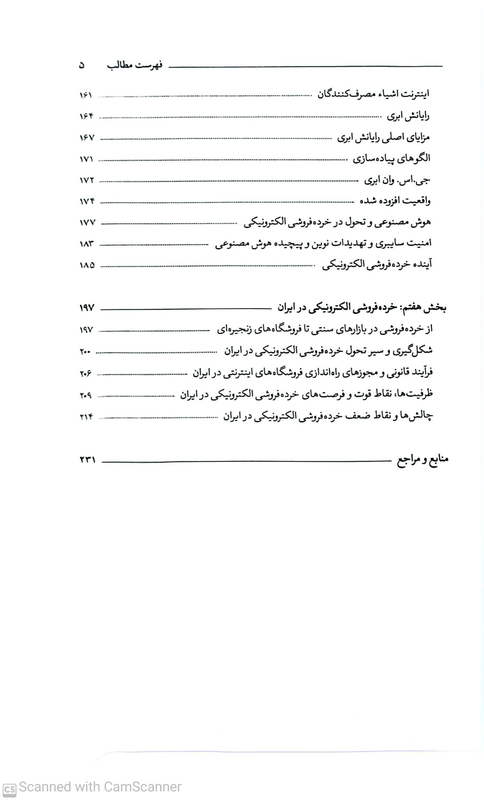 فهرست مطالب ۵
اینترنت اشیاء مصرف‌کنندگان ۱۶۱
رایانش ابری ۱۶۴
مزایای اصلی رایانش ابری ۱۶۷
الگوهای پیاده‌سازی ۱۷۱
جی.اس. وان ابری ۱۷۲
واقعیت افزوده شده ۱۷۴
هوش مصنوعی و تحول در خرده‌فروشی الکترونیکی ۱۷۷
امنیت سایبری و تهدیدات نوین و پیچیده هوش مصنوعی ۱۸۳
آینده خرده‌فروشی الکترونیکی ۱۸۵
بخش هفتم: خرده‌فروشی الکترونیکی در ایران ۱۹۷
از خرده‌فروشی در بازارهای سنتی تا فروشگاه‌های زنجیره‌ای ۱۹۷
شکل‌گیری و سیر تحول خرده‌فروشی الکترونیکی در ایران ۲۰۰
فرآیند قانونی و مجوزهای راه‌اندازی فروشگاه‌های اینترنتی در ایران ۲۰۶
ظرفیت‌ها، نقاط قوت و فرصت‌های خرده‌فروشی الکترونیکی در ایران ۲۰۹
چالش‌ها و نقاط ضعف خرده‌فروشی الکترونیکی در ایران ۲۱۴
منابع و مراجع ۲۳۱
CS Scanned with CamScanner